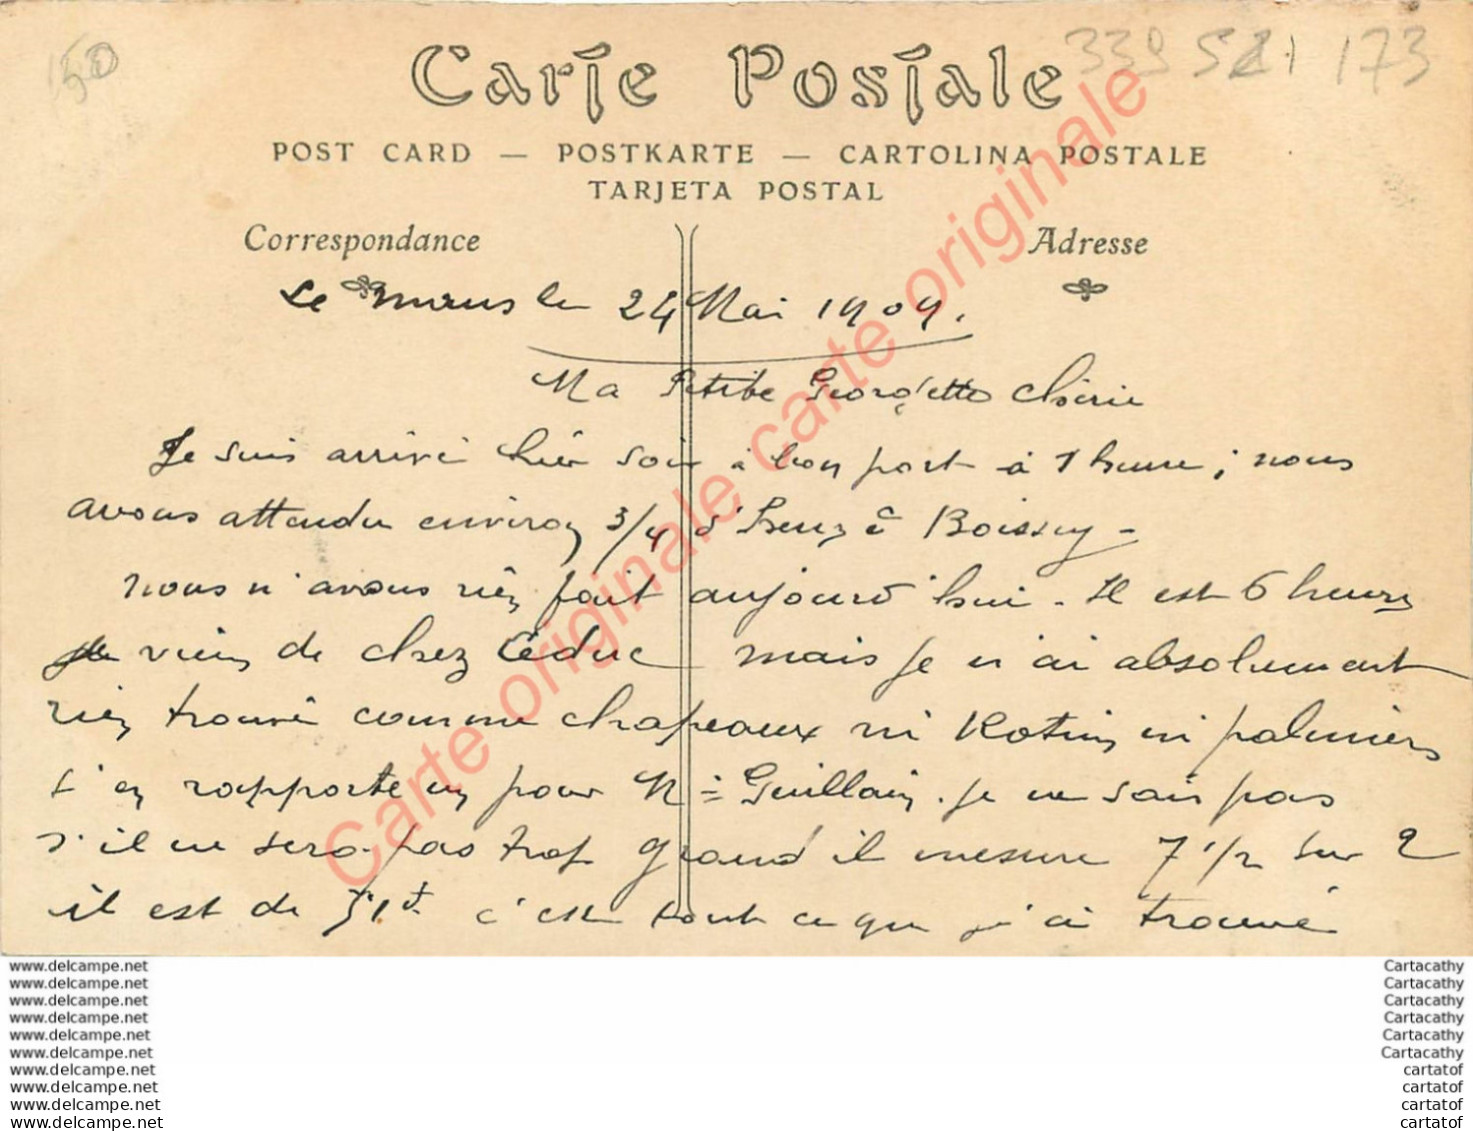 150
339 521 173
Carte Postale
POST CARD — POSTKARTE — CARTOLINA POSTALE
TARJETA POSTAL
Correspondance
Adresse
Le le 24 Mai 1909.
Ma Petite Georgette chérie
Je suis arrivé hier soir à bon port à 1 heure ; nous
avons attendu environ 3/4 d'heure à Boissy -
nous n'avons rien fait aujourd'hui. Il est 6 heures
je viens de chez Leduc mais je n'ai absolument
rien trouvé comme chapeaux ni Rotin ni palmiers
j'en rapporte un pour Mr Guillain. je ne sais pas
s'il ne sera pas trop grand il mesure 7 1/2 sur 2
il est de c'est tout ce que j'ai trouvé
Carte originale carte originale carte originale
www.delcampe.net
www.delcampe.net
www.delcampe.net
www.delcampe.net
www.delcampe.net
www.delcampe.net
www.delcampe.net
www.delcampe.net
www.delcampe.net
www.delcampe.net
Cartacathy
Cartacathy
Cartacathy
Cartacathy
Cartacathy
Cartacathy
cartatof
cartatof
cartatof
cartatof